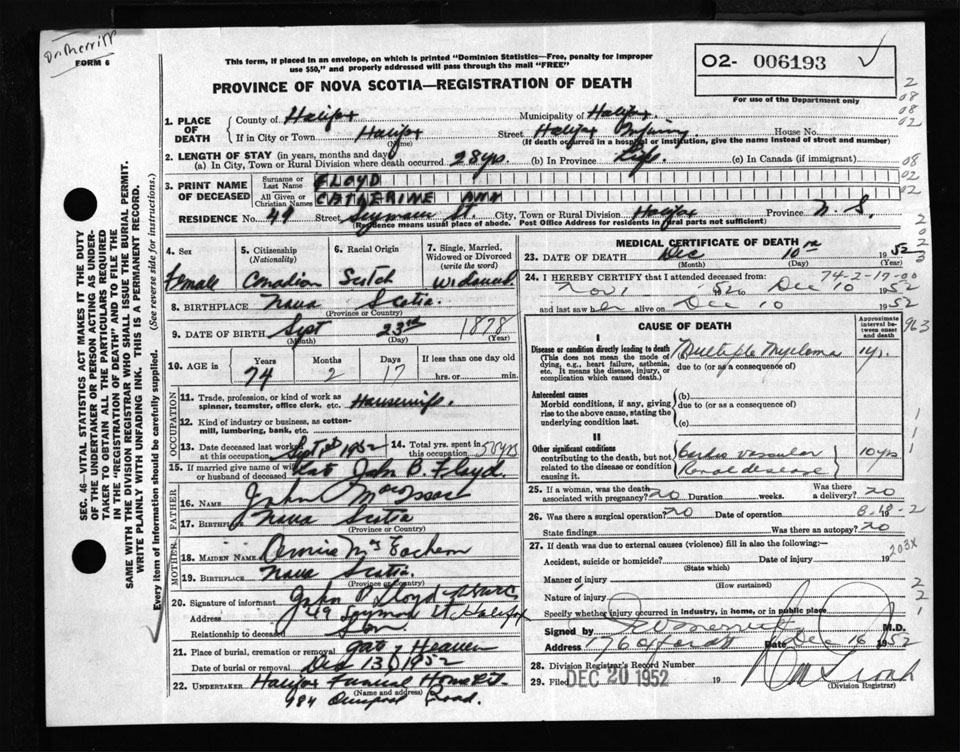 Dr. Merritt
FORM 6
This form, if placed in an envelope, on which is printed "Dominion Statistics—Free, penalty for improper
use $50," and properly addressed will pass through the mail "FREE"
PROVINCE OF NOVA SCOTIA—REGISTRATION OF DEATH
O2- 006193
For use of the Department only
1. PLACE OF DEATH
County of Halifax Municipality of Halifax
If in City or Town Halifax Street Halifax Infirmary House No.
(Name) (If death occurred in a hospital or institution, give the name instead of street and number)
2. LENGTH OF STAY (in years, months and day)
(a) In City, Town or Rural Division where death occurred 28 yrs. (b) In Province Life (c) In Canada (if immigrant)
3. PRINT NAME OF DECEASED
Surname or Last Name FLOYD
All Given or Christian Names CATHERINE ANN
RESIDENCE No. 49 Street Seymour St. City, Town or Rural Division Halifax Province N. S.
(Residence means usual place of abode. Post Office Address for residents in rural parts not sufficient)
4. Sex
Female
5. Citizenship (Nationality)
Canadian
6. Racial Origin
Scotch
7. Single, Married, Widowed or Divorced (write the word)
Widowed
8. BIRTHPLACE Nova Scotia
(Province or Country)
9. DATE OF BIRTH Sept 23rd 1878
(Month) (Day) (Year)
10. AGE in Years 74 Months 2 Days 17 If less than one day old
hrs. or min.
OCCUPATION
11. Trade, profession, or kind of work as
spinner, teamster, office clerk, etc. Housewife.
12. Kind of industry or business, as cotton-
mill, lumbering, bank, etc.
13. Date deceased last worked
at this occupation Sept 1952
14. Total yrs. spent in
this occupation 50 yrs
15. If married give name of wife
or husband of deceased Late John B. Floyd
FATHER
16. NAME John
17. BIRTHPLACE Nova Scotia
(Province or Country)
MOTHER
18. MAIDEN NAME McEachern
19. BIRTHPLACE Nova Scotia.
(Province or Country)
20. Signature of informant John Floyd
Address 49 Seymour St Halifax
Relationship to deceased Son
21. Place of burial, cremation or removal Gate of Heaven
Date of burial or removal Dec 13 1952
22. UNDERTAKER Halifax Funeral Home
(Name and address)
Road.
MEDICAL CERTIFICATE OF DEATH
23. DATE OF DEATH Dec 10th 1952
(Month) (Day) (Year)
74-2-17-00
24. I HEREBY CERTIFY that I attended deceased from:
Nov 1 1952 to Dec 10 1952
and last saw her alive on Dec 10 1952
CAUSE OF DEATH
Approximate interval between onset and death
I
Disease or condition directly leading to death
(This does not mean the mode of
dying, e.g., heart failure, asthenia,
etc. It means the disease, injury, or
complication which caused death.)
(a) Multiple Myeloma 1 yr.
due to (or as a consequence of)
Antecedent causes
Morbid conditions, if any, giving
rise to the above cause, stating the
underlying condition last.
(b)
due to (or as a consequence of)
(c)
II
Other significant conditions
contributing to the death, but not
related to the disease or condition
causing it.
Cardio vascular
Renal disease
10 yrs
25. If a woman, was the death
associated with pregnancy? no Duration weeks. Was there
a delivery? no
26. Was there a surgical operation? no Date of operation 19
State findings Was there an autopsy? no
27. If death was due to external causes (violence) fill in also the following:—
Accident, suicide or homicide? Date of injury 19
(State which)
203X
Manner of injury
(How sustained)
Nature of injury
Specify whether injury occurred in industry, in home, or in public place
Signed by Merritt M.D.
Address 176 Date Dec 16 1952
28. Division Registrar's Record Number
29. Filed DEC 20 1952 19
(Division Registrar)
SEC. 46—VITAL STATISTICS ACT MAKES IT THE DUTY
OF THE UNDERTAKER OR PERSON ACTING AS UNDER-
TAKER TO OBTAIN ALL THE PARTICULARS REQUIRED
IN THE "REGISTRATION OF DEATH" AND TO FILE THE
SAME WITH THE DIVISION REGISTRAR WHO SHALL ISSUE THE BURIAL PERMIT.
WRITE PLAINLY WITH UNFADING INK. THIS IS A PERMANENT RECORD.
Every item of information should be carefully supplied. (See reverse side for instructions.)